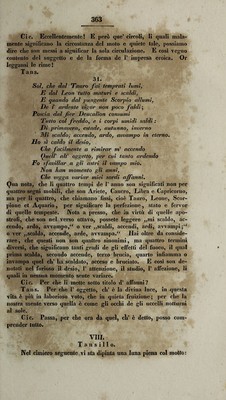 363
Cic. Eccellentemente! E però que' circoli, li quali malamente
significano la circostanza del moto e quiete tale, possiamo
dire che son messi a significar la sola circulazione. E così vegno
contento del suggetto e de la forma de l' impresa eroica. Or
leggansi le rime!
Tans.
31.
Sol, che dal Tauro fai temprati lumi,
E dal Leon tutto maturi e scaldi,
E quando dal pungente Scorpio allumi,
De l' ardente vigor non poco faldi;
Poscia dal fier Deucalion consumi
Tutto col freddo, e i corpi umidi saldi:
Di primavera, estade, autunno, inverno
Mi scaldo, accendo, ardo, avvampo in eterno.
Ho sì caldo il desio,
Che facilmente a rimirar m' accendo
Quell' alt' oggetto, per cui tanto ardendo
Fo sfavillar a gli astri il vampo mio.
Non han momento gli anni,
Che vegga variar miei sordi affanni.
Qua nota, che li quattro tempi de l' anno son significati non per
quattro segni mobili, che son Ariete, Cancro, Libra e Capricorno,
ma per li quattro, che chiamano fissi, cioè Tauro, Leone, Scorpione
ed Aquario, per significare la perfezione, stato e fervor
di quelle tempeste. Nota a presso, che in virtù di quelle apostrofi,
che son nel verso ottavo, possete leggere „mi scaldo, accendo,
ardo, avvampo,“ o ver „scaldi, accendi, ardi, avvampi;“
o ver „scalda, accende, arde, avvampa.“ Hai oltre da considerare,
che questi non son quattro sinonimi, ma quattro termini
diversi, che significano tanti gradi de gli effetti del fuoco, il qual
prima scalda, secondo accende, terzo brucia, quarto infiamma o
invampa quel ch' ha scaldato, acceso e bruciato. E così son denotati
nel furioso il desio, l' attenzione, il studio, l' affezione, li
quali in nessun momento sente variare.
Cic. Per che li mette sotto titolo d' affanni?
Tans. Per che l' oggetto, ch' è la divina luce, in questa
vita è più in laborioso voto, che in quieta fruizione; per che la
nostra mente verso quella è come gli occhi de gli uccelli notturni
al sole.
Cic. Passa, per che ora da quel, ch' è detto, posso comprender
tutto.
VIII.
Tansillo.
Nel cimiero seguente vi sta dipinta una luna piena col motto: